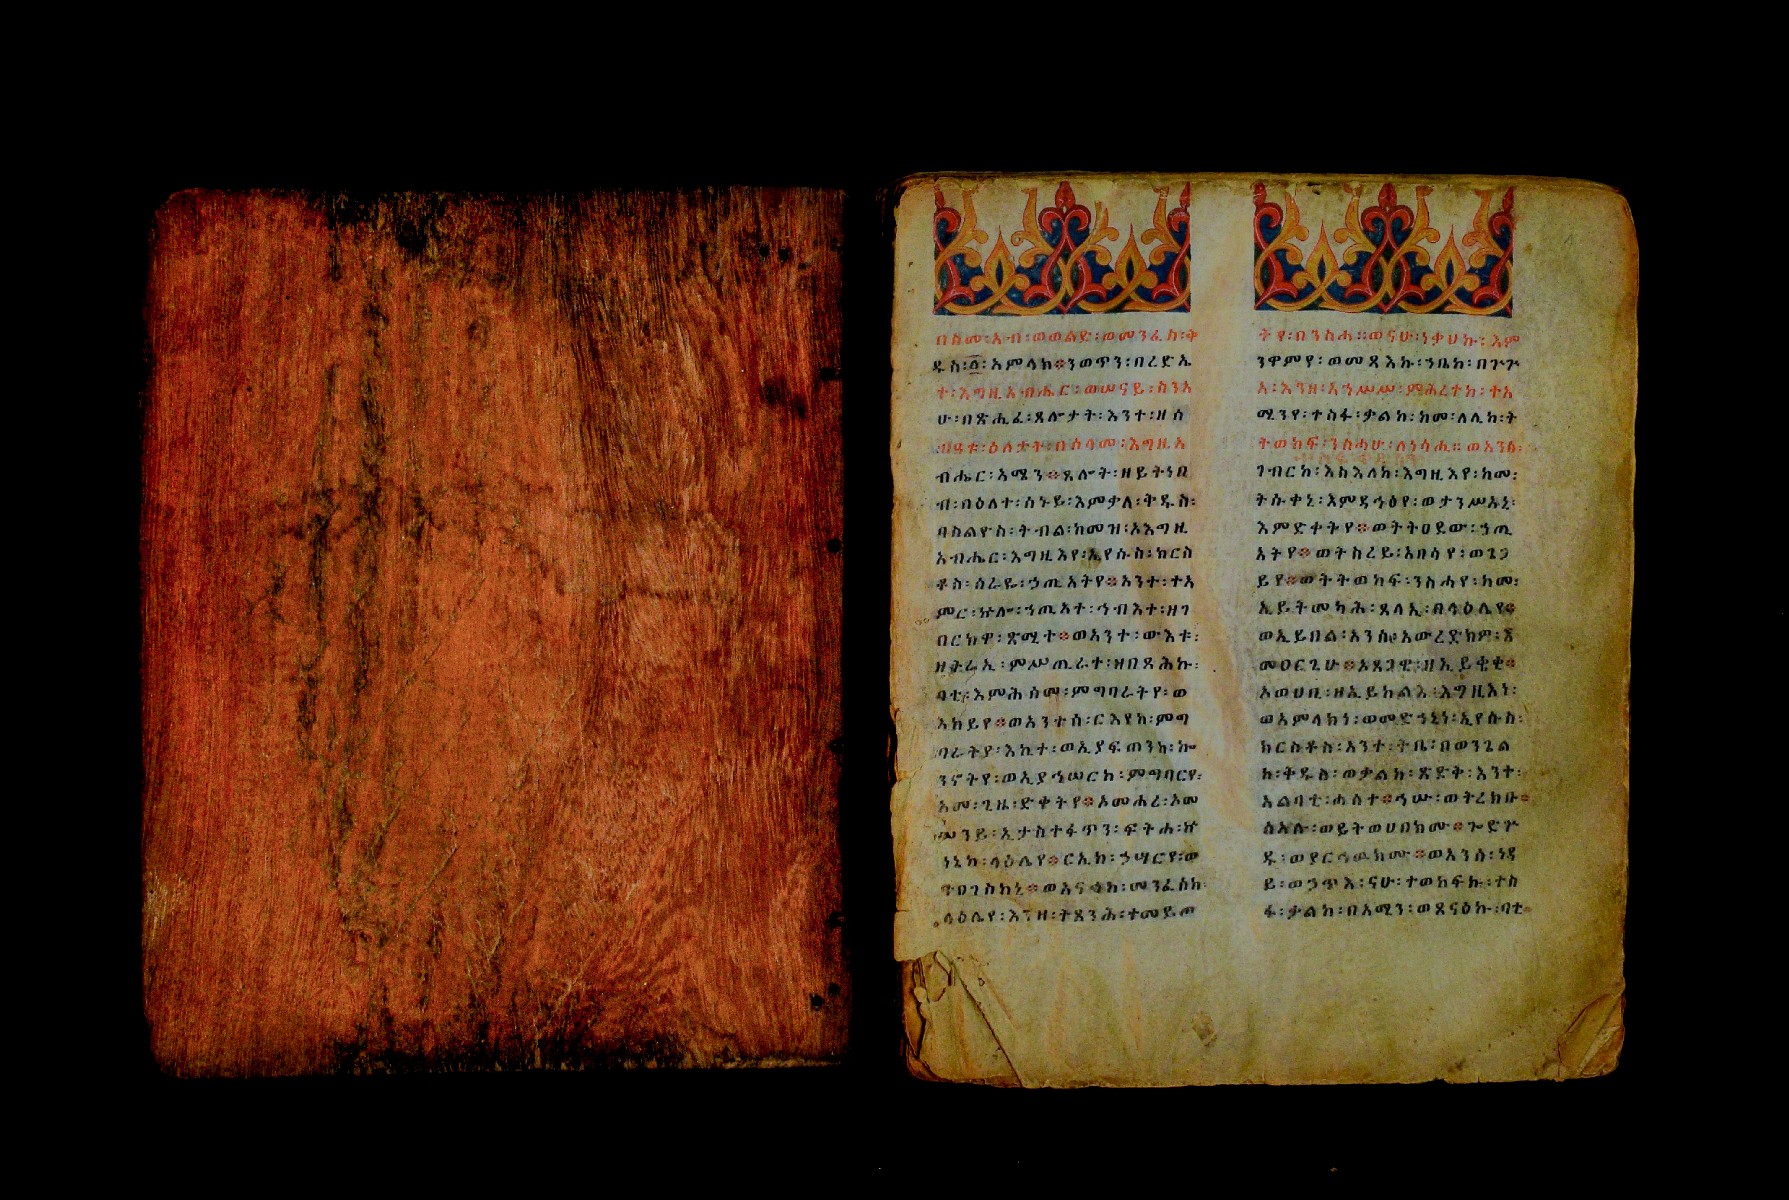 በስመ፡አብ፡ወወልድ፡ወመንፈስ፡ቅ
ዱስ፡፩፡አምላክ፨ንወጥን፡በረድኤ
ት፡እግዚአብሔር፡ወሠናይ፡ስንአ
ሁ፡በጽሒፈ፡ጸሎታት፡እንተ፡ዘሰ
ቡዓቱ፡ዕለታት፡በሰላመ፡እግዚአ
ብሔር፡አሜን፨ጸሎት፡ዘይትነበ
ብ፡በዕለተ፡ሰኑይ፡እምቃለ፡ቅዱስ፡
ባስልዮስ፡ትብል፡ከመዝ፡ኦእግዚ
አብሔር፡እግዚእየ፡ኢየሱስ፡ክርስ
ቶስ፡ሰራዬ፡ኃጢአትየ፨አንተ፡ተአ
ምር፡ኵሎ፡ኃጢአት፡ኅብእተ፡ዘገ
በርክዋ፡ጽሚተ፨ወአንተ፡ውእቱ፡
ዘትሬኢ፡ምሥጢራተ፡ዘበጻሕኩ፡
ባቲ፡እምሕሰመ፡ምግባራትየ፡ወ
እከይየ፨ወአንተሰ፡ርእየከ፡ምግ
ባራትየ፡እኪተ፡ወኢያፍጠንከ፡ኰ
ንኖትየ፡ወኢያኅሠርከ፡ምግባርየ፡
አመ፡ጊዜ፡ድቀትየ፨ኦመሐረ፡ኦመ
ምንይ፡ኢታስተፋጥን፡ፍትሐ፡ኵ
ነኔከ፡ላዕሌየ፨ርኢከ፡ኃሣርየ፡ወ
ተዐገስከኒ፨ወአናኅከ፡መንፈስከ
ላዕሌየ፡እንዘ፡ትጸንሕ፡ተመይጦ
ትየ፡በንስሐ፡፡ወናሁ፡ነቃህኩ፡እም
ንዋምየ፡ወመጻእኩ፡ኀቤከ፡በጕጕ
አ፡እንዘ፡አኀሥሥ፡ምሕረተከ፡ተአ
ሚንየ፡ተስፋ፡ቃልከ፡ከመ፡ለሊከ፡ት
ትወከፍ፡ንስሓሁ፡ለነሳሒ፡፡ወአንሰ፡
ገብርከ፡እስእለከ፡እግዚእየ፡ከመ፡
ትሱቀኒ፡እምዳኅፅየ፡ወታንሥአኒ፡
እምድቀትየ፨ወትትዐደው፡ኃጢ
አትየ፨ወትስረይ፡አበሳየ፡ወጌጋ
ይየ፨ወትትወከፍ፡ንስሓየ፡ከመ፡
ኢይትመካሕ፡ጸላኢ፡በላዕሌየ፨
ወኢይበል፡አንሰ፡አውረድክዎ፡ጸ
መዐርጊሁ፨ኦጸጋዊ፡ዘኢይቂቂ፨
ኦወሀቢ፡ዘኢይከልእ፡እግዚእነ፡
ወአምላክነ፡ወመድኃኒነ፡ኢየሱስ፡
ክርስቶስ፡አንተ፡ትቤ፡በወንጌል
ከ፡ቅዱስ፡ወቃልከ፡ጽድቅ፡እንተ፡
አልባቲ፡ሐሰተ፨ኅሡ፡ወትረክቡ፨
ሰአሉ፡ወይትወሀበክሙ፨ጐድጕ
ዱ፡ወያርኅዉክሙ፨ወአንሰ፡ነዳ
ይ፡ወኃጥእ፡ናሁ፡ተወከፍኩ፡ተስ
ፋ፡ቃልከ፡በአሚን፡ወጸናዕኩ፡ባቲ